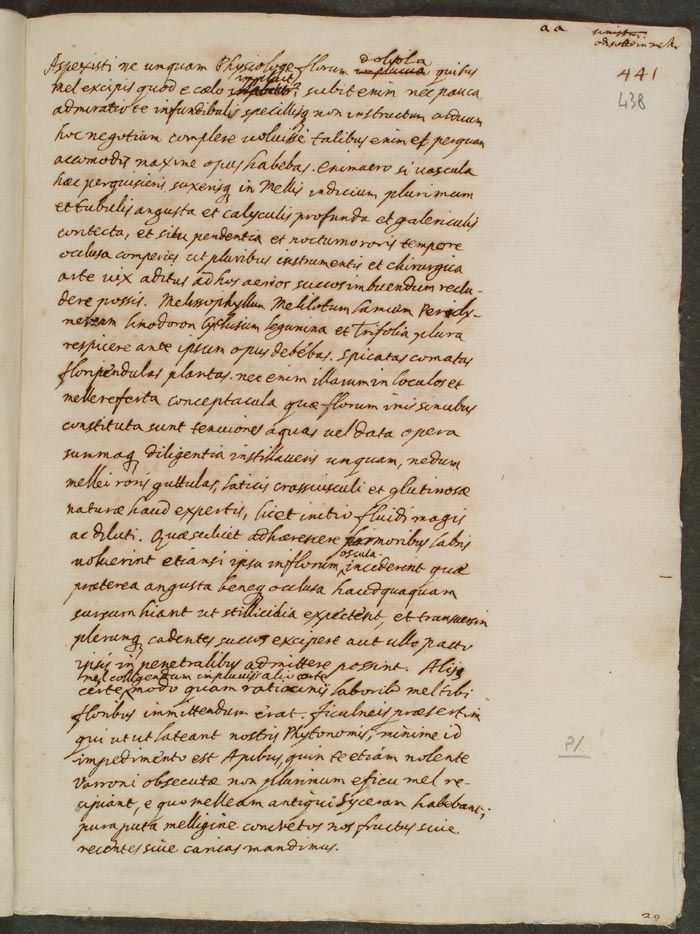 aa
441
438
Aspexisti ne unquam Physiologe florum doliola quibus
mel excipis quod e cælo impluit? subit enim nec pauca
admiratio te infundibulis specillisq non instructum arduum
hoc negotium complere uoluisse talibus enim et perquam
accomodis maxime opus habebas. Enimuero si uascula
hæc perquisieris suxerisq in Mellis indicium plurimum
et tubulis angusta et calyculis profunda et galericulis
contecta, et situ pendentia et nocturno roris tempore
oclusa comperies ut pluribus instrumentis et chirurgica
arte uix aditus ad hos aerios succos imbuendum reclu-
dere possis. Melissophyllum Melilotum lamium Pericly-
menum limodoron Cythisum legumina et Trifolia plura
respicere ante ipsum opus debebas. Spicatas comatas
floripendulas plantas. nec enim illarum in loculos et
mellereferta conceptacula quæ florum imis sinubus
constituta sunt tenuiores aquas uel data opera
summaq diligentia instillaueris unquam, nedum
mellei roris guttulas, laticis crassiusculi et glutinosæ
naturæ haud expertis, licet initio fluidi magis
ac diluti. Quæ sicut adhærescere primoribus labris
uoluerint etiansi ipsa in florum oscula inciderent quæ
præterea angusta beneq oclusa haudquaquam
sursum hiant ut stillicidia expectent, et transuersim
plerunq cadentes succos excipere aut ullo pacto
ipsis in penetralibus admittere possint. Alioq
mel colligendum impluuiis alio arte
certe modo quam ratiociniis laborib mel tibi
floribus immittendum erat. ficulneis præsertim
qui ut ut lateant nostris Phytonomis, minime id
impedimento est Apibus, quin te etiam nolente
Varroni obsecutæ non plurimum e ficu mel re-
cipiant, e quo melleam antiqui Syceram habebant;
pura puta melligine concretos nos fructus siue
recentes siue caricas mandimus.
21
29